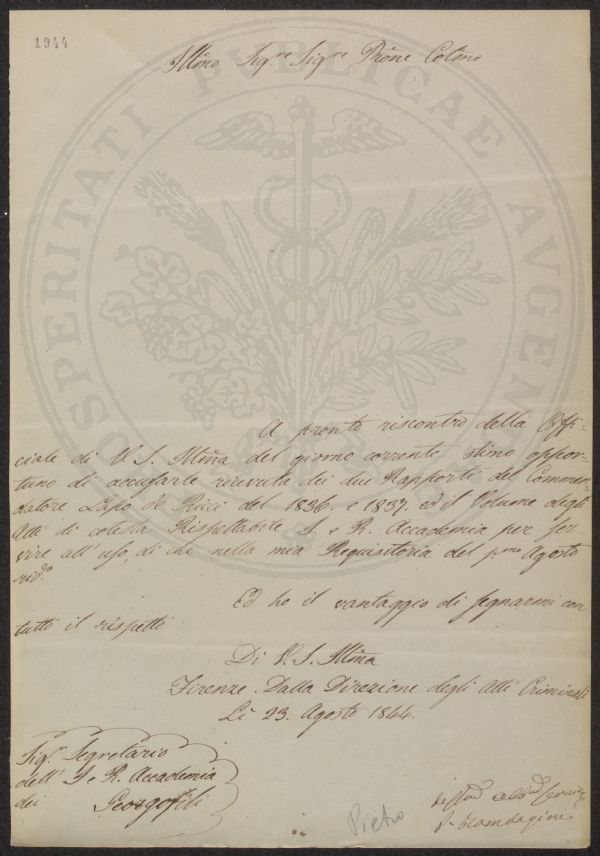 1944
Illmo Sigre Sigre Prone Colmo
PROSPERITATI PUBLICAE AUGENDAE
A pronto riscontro della Offi-
ciale di V. S. Illma del giorno corrente stimo oppor-
tuno di accusarle ricevuta dei due Rapporti del Commen
datore Lapo de' Ricci del 1836. e 1837. ed il Volume degli
Atti di cotesta Rispettabile I. e R. Accademia per ser
vire all' uso, di che nella mia Requisitoria del pmo Agosto
Ed ho il vantaggio di segnarmi con
tutto il rispetto
Di V. S. Illma
Firenze. Dalla Direzione degli Atti Criminali
Li 23. Agosto 1844.
Sigr Segretario
dell' I. e R. Accademia
dei Georgofili
Pietro